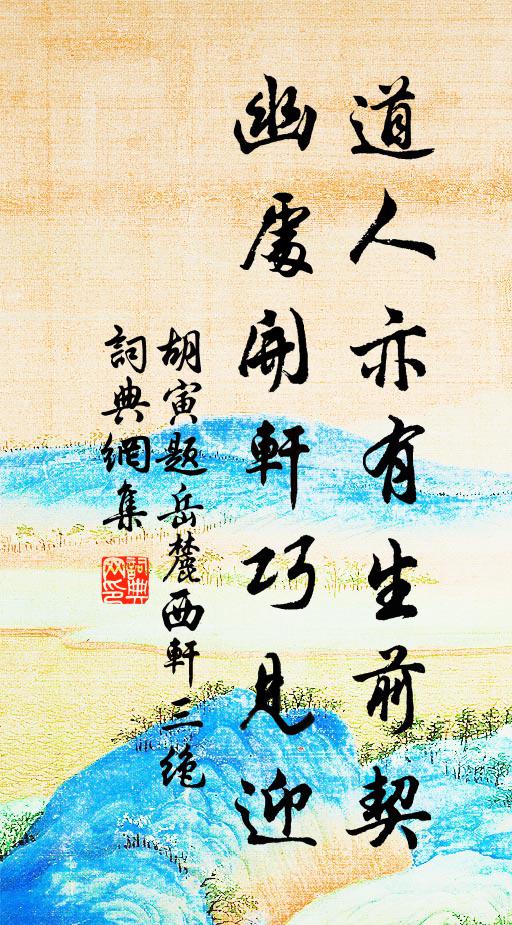 道人亦有生前契
幽處開軒巧見迎
胡寅題岳麓西軒三絶
詞典網集
詞典网印